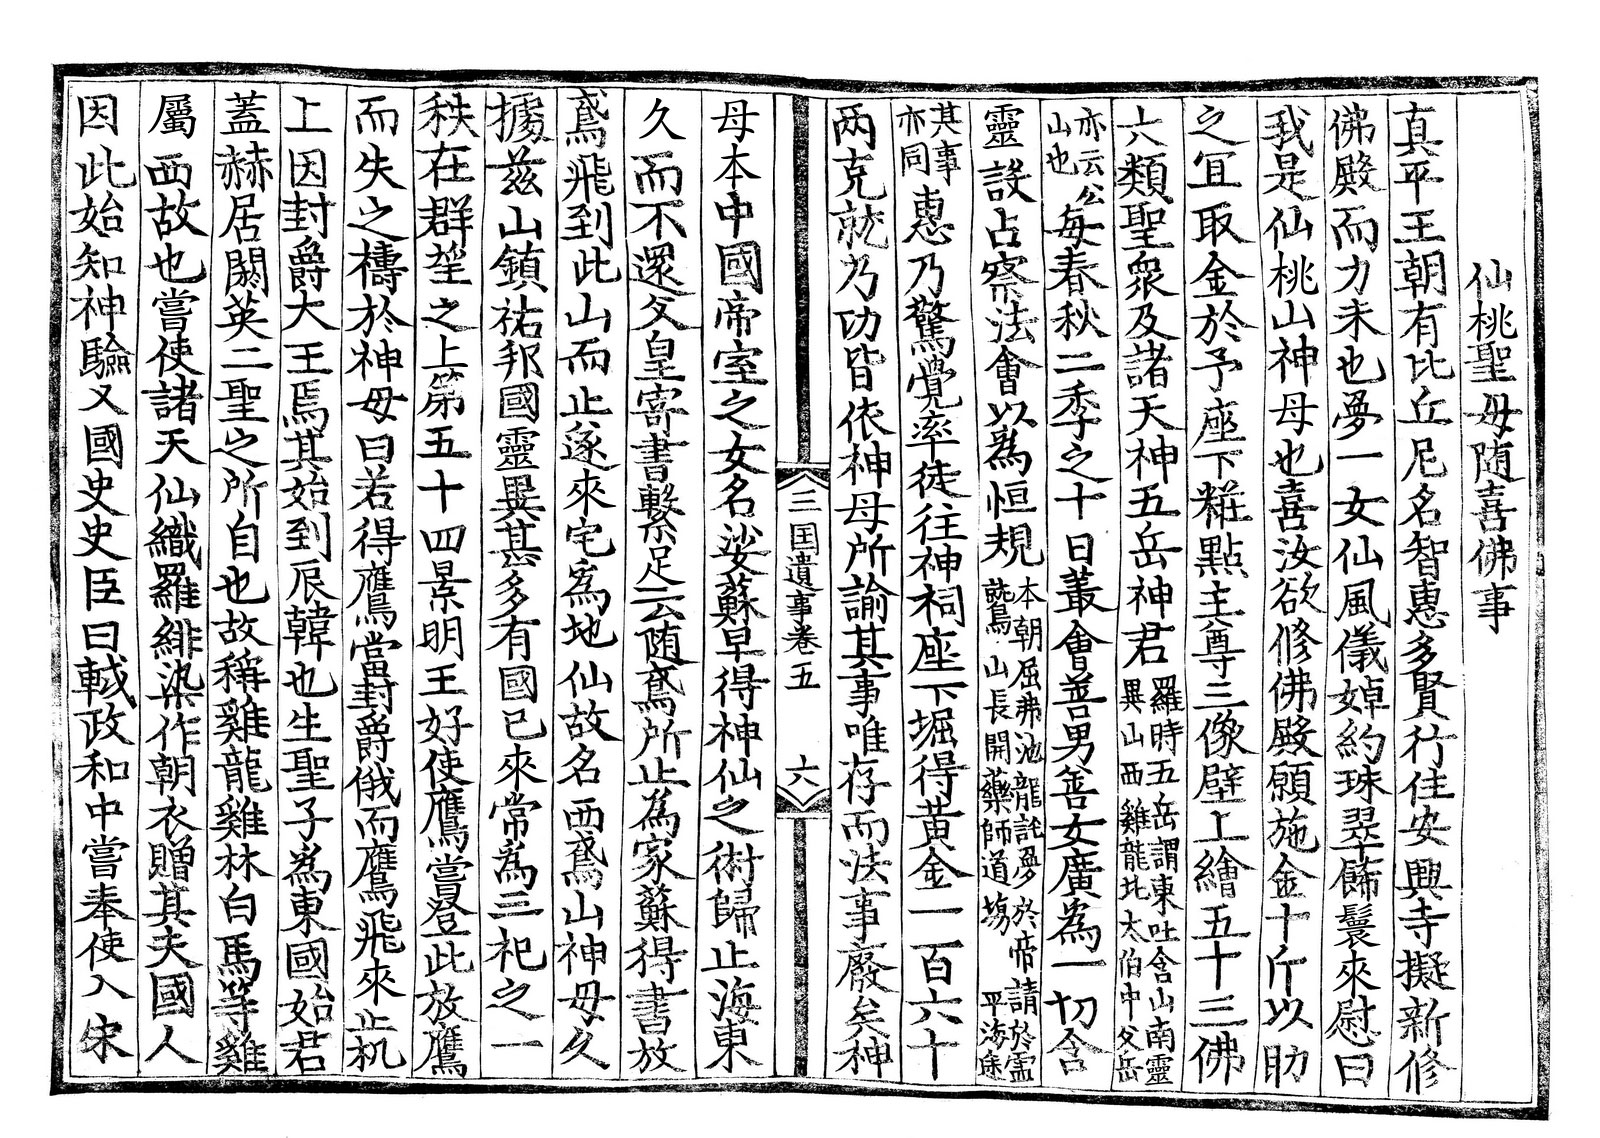 仙桃聖母随喜佛事
真平王朝有比丘尼名智惠多賢行住安興寺擬新修
佛殿而力未也夢一女仙風儀婥約珠翠飾鬟來慰曰
我是仙桃山神母也喜汝欲修佛殿願施金十斤以助
之宜取金於予座下糚點主尊三像壁上繪五十三佛
六類聖衆及諸天神五岳神君羅時五岳謂東吐含山南靈異山西雞龍北太伯中父岳
亦云公山也每春秋二季之十日叢會善男善女廣為一切含
靈設占察法會以為恒規本朝屈弗池龍託夢於帝請於靈鷲山長開藥師道場平海途
其事亦同惠乃驚覺率徒往神祠座下堀得黄金一百六十
两克就乃功皆依神母所諭其事唯存而法事廢矣神
三国遺事卷五 六
母本中國帝室之女名娑蘇早得神仙之術歸止海東
久而不還父皇寄書繫足云随鳶所止為家蘇得書放
鳶飛到此山而止遂來宅為地仙故名西鳶山神母久
據兹山鎮祐邦國靈異甚多有國已來常為三祀之一
秩在群望之上第五十四景明王好使鷹嘗登此放鷹
而失之禱於神母曰若得鷹當封爵俄而鷹飛來止机
上因封爵大王焉其始到辰韓也生聖子為東國始君
蓋赫居閼英二聖之所自也故稱雞龍雞林白馬等雞
屬西故也嘗使諸天仙織羅緋染作朝衣贈其夫國人
因此始知神驗又國史史臣曰軾政和中嘗奉使入宋